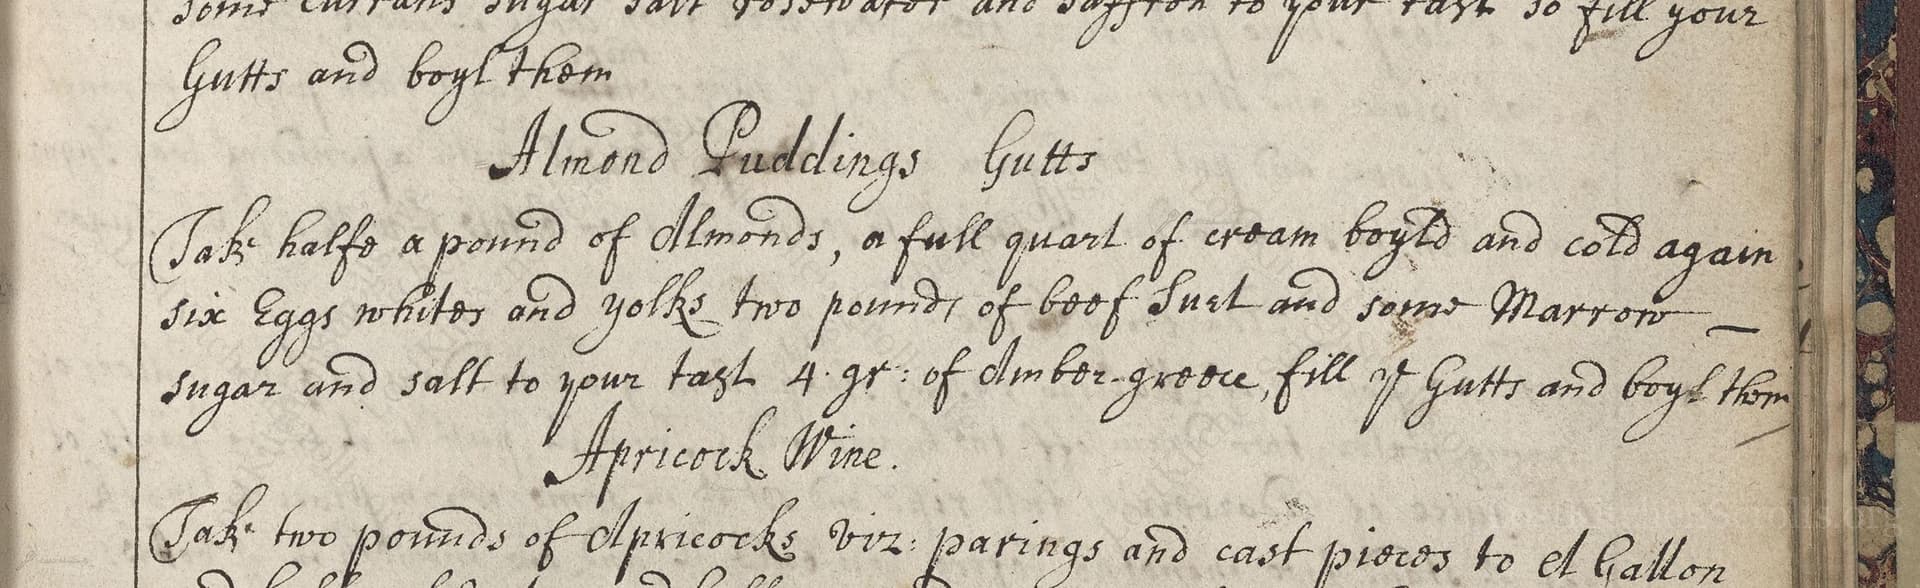 some currans sugar salt rosewater and saffron to your tast so fill your
Gutts and boyl them
Almond Puddings Gutts
Take halfe a pound of Almonds, a full quart of cream boyld and cold again
six Eggs whites and yolks two pounds of beef Suet and some Marrow –
sugar and salt to your tast 4. gr: of Amber-greece, fill ye Gutts and boyl them
Apricock Wine.
Take two pounds of Apricocks viz: parings and cast pieces to A Gallon